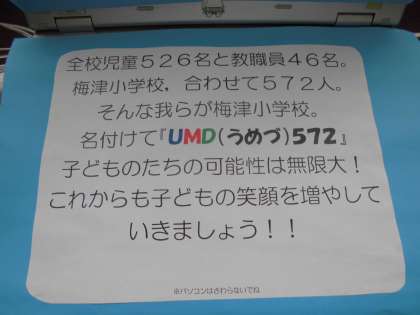 全校児童５２６名と教職員４６名。
梅津小学校，合わせて５７２人。
そんな我らが梅津小学校。
名付けて『UMD(うめづ)572』
子どものたちの可能性は無限大！
これからも子どもの笑顔を増やして
いきましょう！！
※パソコンはさわらないでね